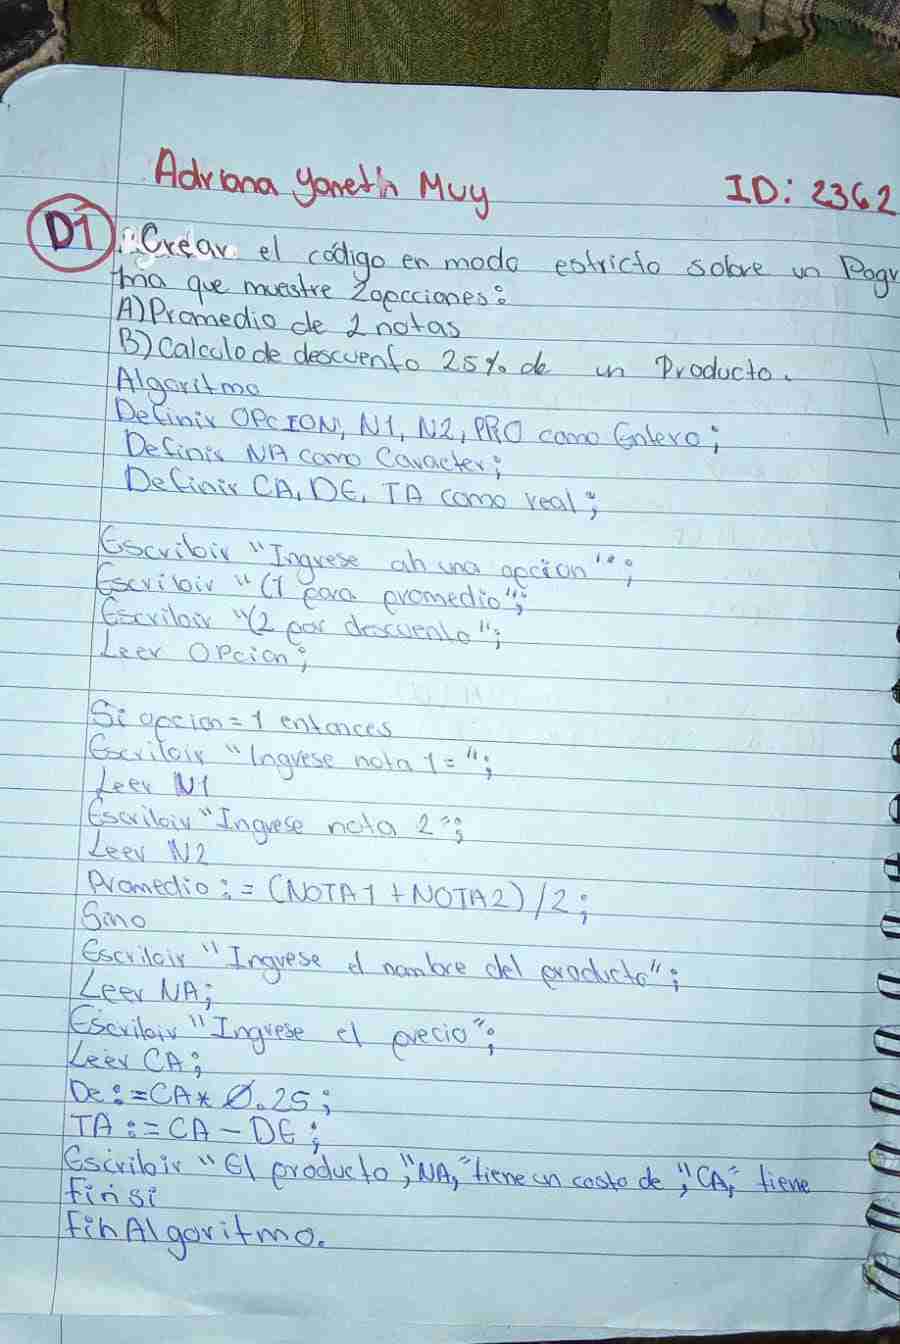 Adriana Yaneth Muy ID: 2362
D1 : Crear el código en modo estricto sobre un Pogr
ma que muestre 2opcciones:
A)Promedio de 2 notas
B)Calculo de descuento 25% de un Producto.
Algoritmo
Definir OPCION, N1, N2, PRO como Entero;
Definir NA como Caracter;
Definir CA, DE, TA como real;
Escribir "Ingrese ah una opcion";
Escribir "(1 para promedio";
Escribir "(2 por descuento";
Leer OPcion;
Si opcion=1 entonces
Escribir "Ingrese nota 1=";
Leer N1
Escribir "Ingrese nota 2";
Leer N2
Promedio:=(NOTA1+NOTA2)/2;
Sino
Escribir "Ingrese el nombre del producto";
Leer NA;
Escribir "Ingrese el precio";
Leer CA;
De:=CA*0.25;
TA:=CA-DE;
Escribir "El producto,"NA,"tiene un costo de ,"CA," tiene
Finsi
FinAlgoritmo.